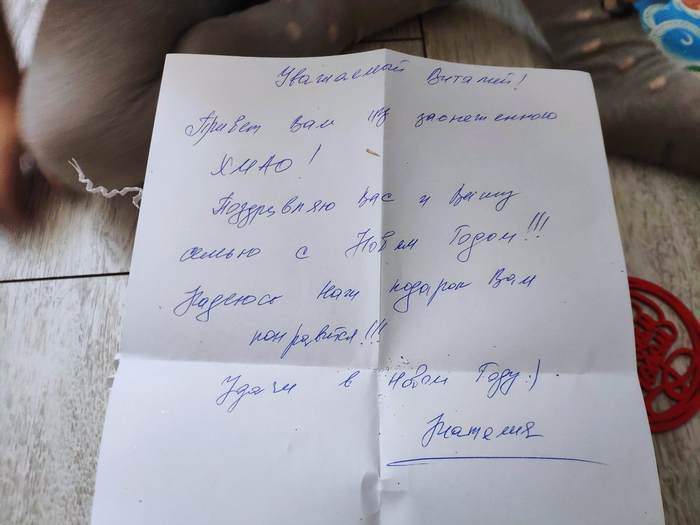 Уважаемый Виталий!
Привет Вам из заснеженного
ХМАО!
Поздравляю Вас и Вашу
семью с Новым Годом!!!
Надеюсь наш подарок Вам
понравится!!!
Удачи в Новом Году:)
Наталия